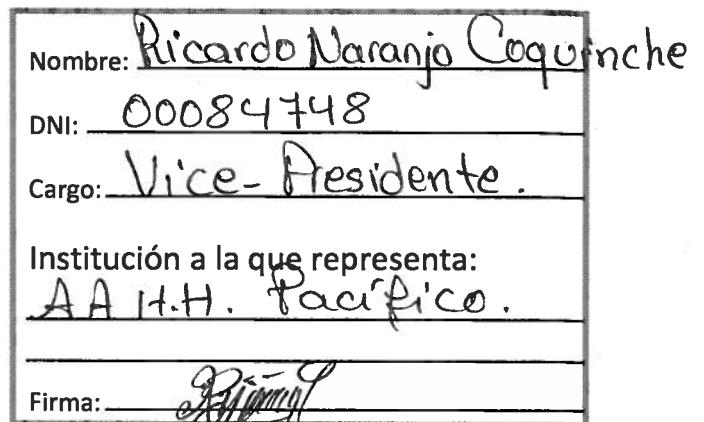 Nombre: Ricardo Naranjo Coquinche
DNI: 00084748
Cargo: Vice-Presidente.
Institución a la que representa:
AA H.H. Pacífico.
Firma: